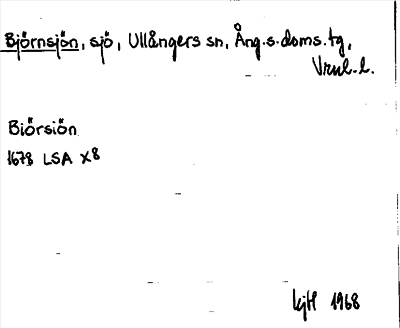 Björnsjön, sjö, Ullångers sn, Ång.s.doms.tg,
Vrnl.l.
Biörsiön
1678 LSA X8
kjH 1968